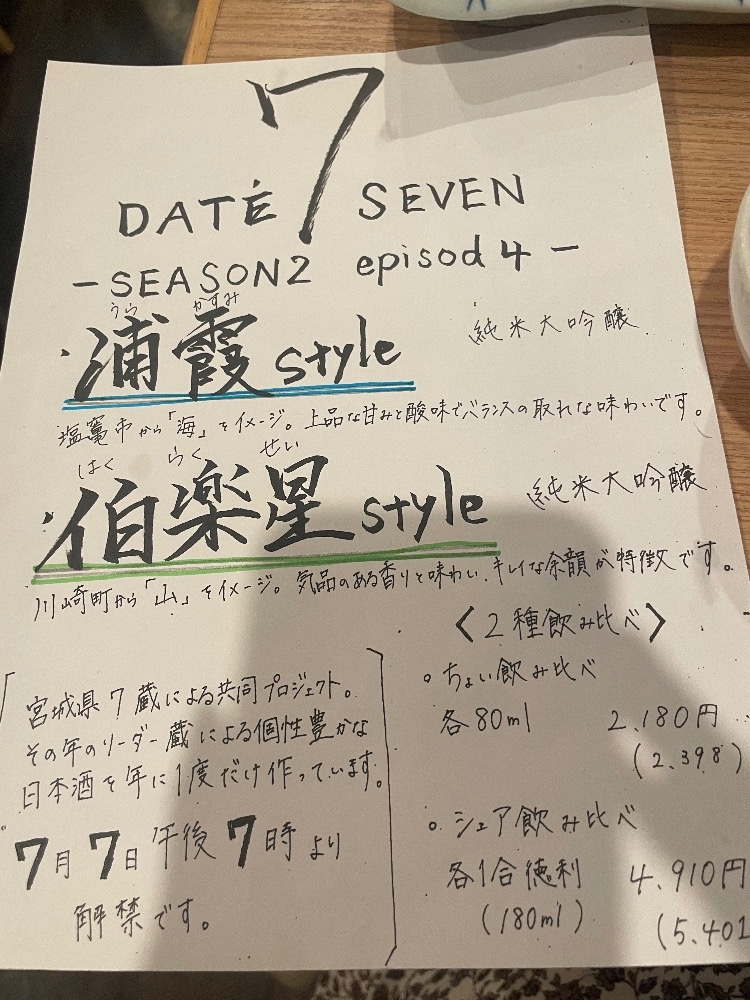 7
DATÉ SEVEN
-SEASON2 episod 4-
うら かすみ
浦霞 style 純米大吟醸
塩竈市から「海」をイメージ。上品な甘みと酸味でバランスの取れな味わいです。
はく らく せい
伯楽星 style 純米大吟醸
川崎町から「山」をイメージ。気品のある香りと味わい、キレイな余韻が特徴です。
宮城県7蔵による共同プロジェクト。
その年のリーダー蔵による個性豊かな
日本酒を年に1度だけ作っています。
7月7日午後7時より
解禁です。
〈2種飲み比べ〉
。ちょい飲み比べ
各80ml 2.180円
(2.398)
。シェア飲み比べ
各1合徳利 4.910円
(180ml) (5.401